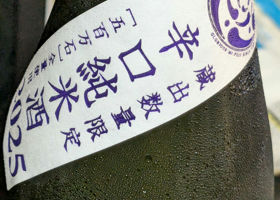 蔵出数量限定
辛口純米酒
「五百万石」
2025